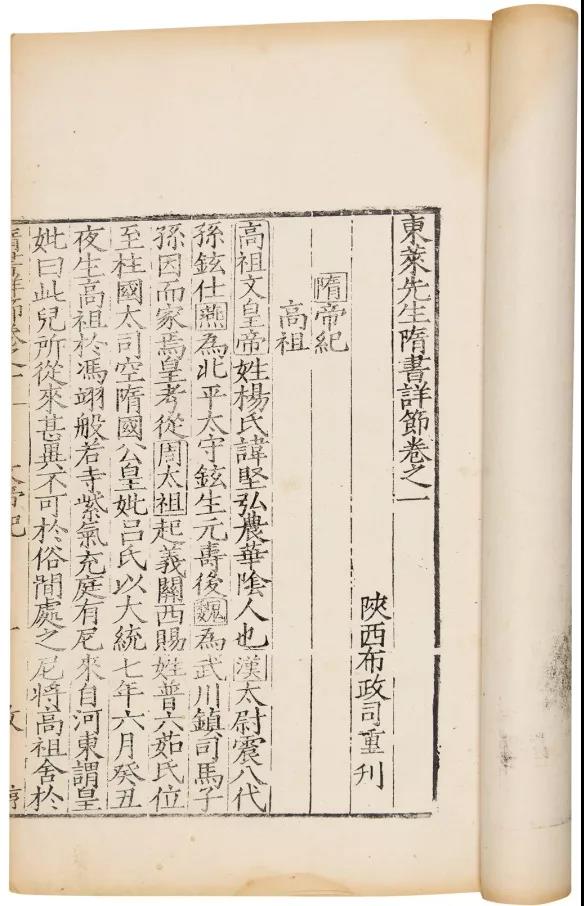 東萊先生隋書詳節卷之一
陝西布政司重刊
隋帝紀
高祖
高祖文皇帝姓楊氏諱堅弘農華陰人也漢太尉震八代
孫鉉仕燕為北平太守鉉生元壽後魏為武川鎮司馬子
孫因而家焉皇考從周太祖起義關西賜姓普六茹氏位
至柱國太司空隋國公皇妣呂氏以大統七年六月癸丑
夜生高祖於馮翊般若寺紫氣充庭有尼來自河東謂皇
妣曰此兒所從來甚異不可於俗間處之尼將高祖舍於